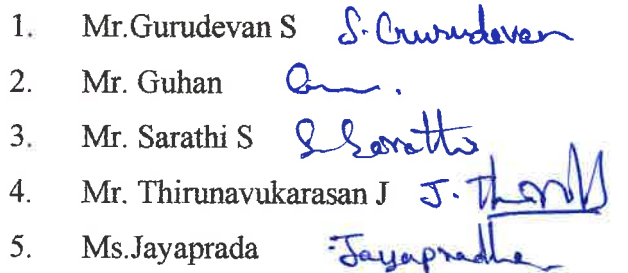 1. Mr.Gurudevan S S. Gurudevan
2. Mr. Guhan
3. Mr. Sarathi S S Sarathi
4. Mr. Thirunavukarasan J J.
5. Ms.Jayaprada Jayapradha